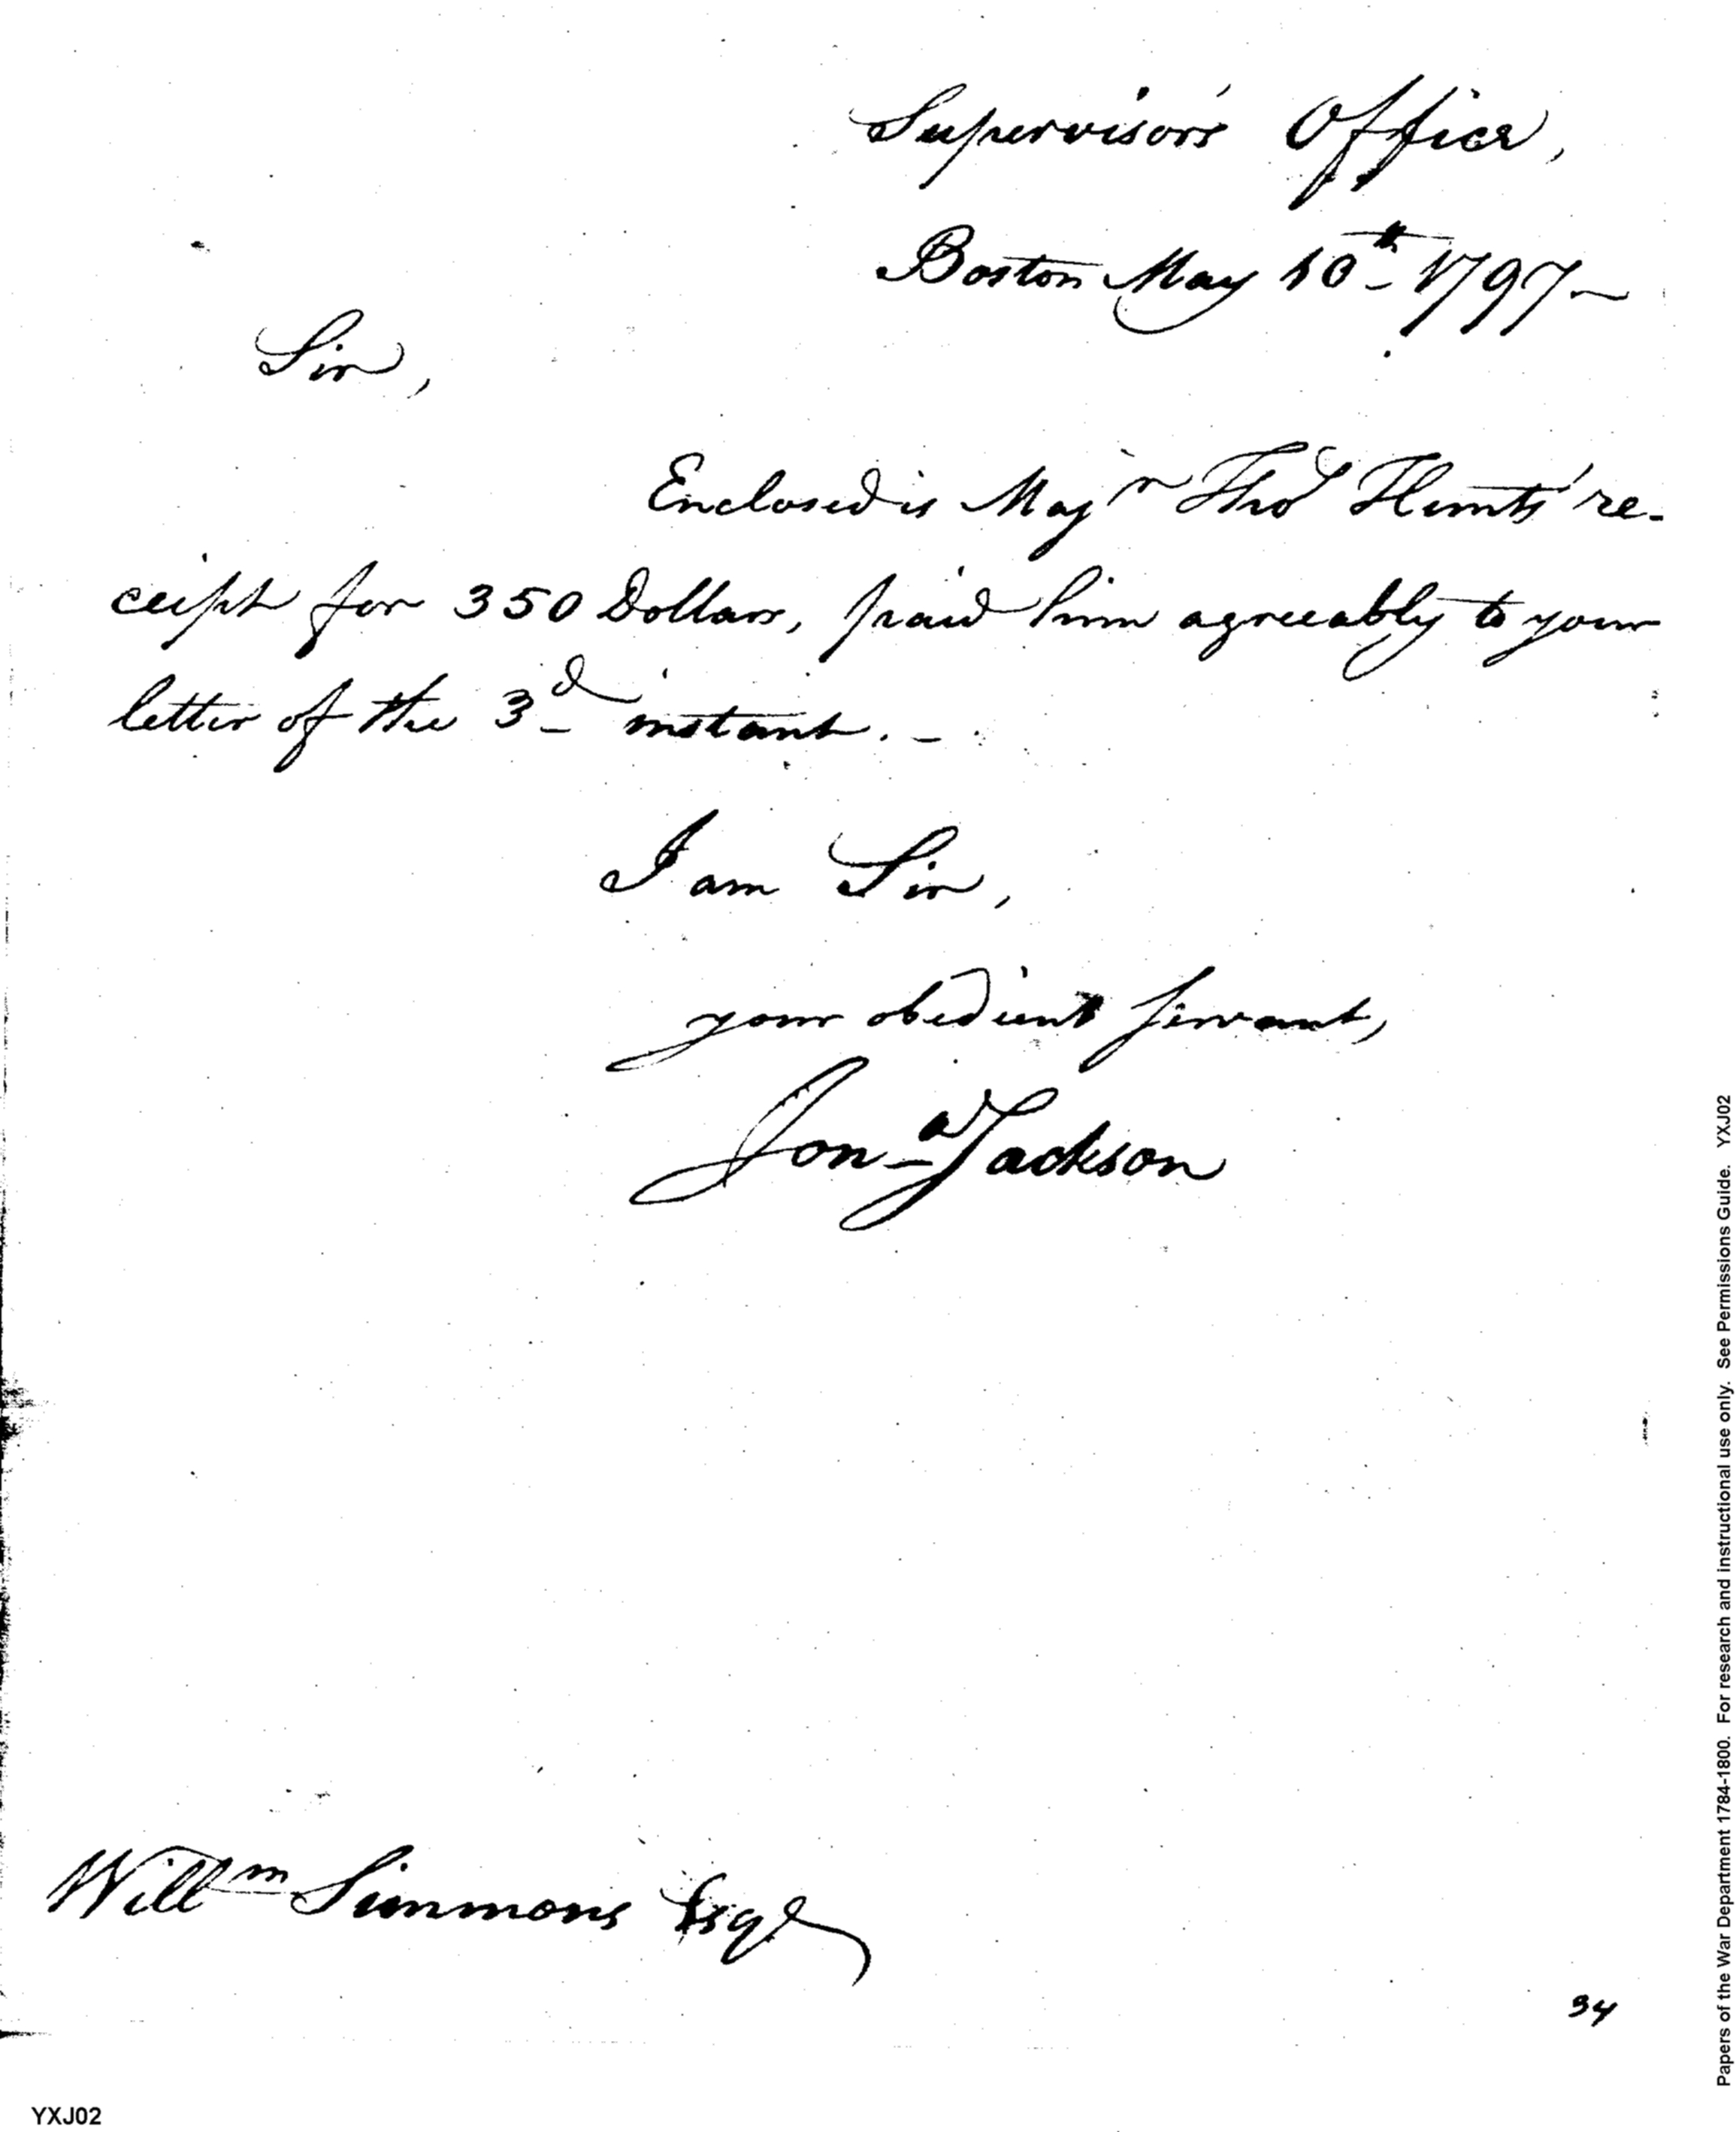 Supervisor's Office,
Boston May 10th 1797-
Sir,
Enclosed is Majr Thos Hunts' re-
ceipt for 350 Dollars, paid him agreeably to your
letter of the 3d instant. -
I am Sir,
your obedient servant,
Jona Jackson
Willm Simmons Esqr
34
YXJ02
Papers of the War Department 1784-1800. For research and instructional use only. See Permissions Guide. YXJ02